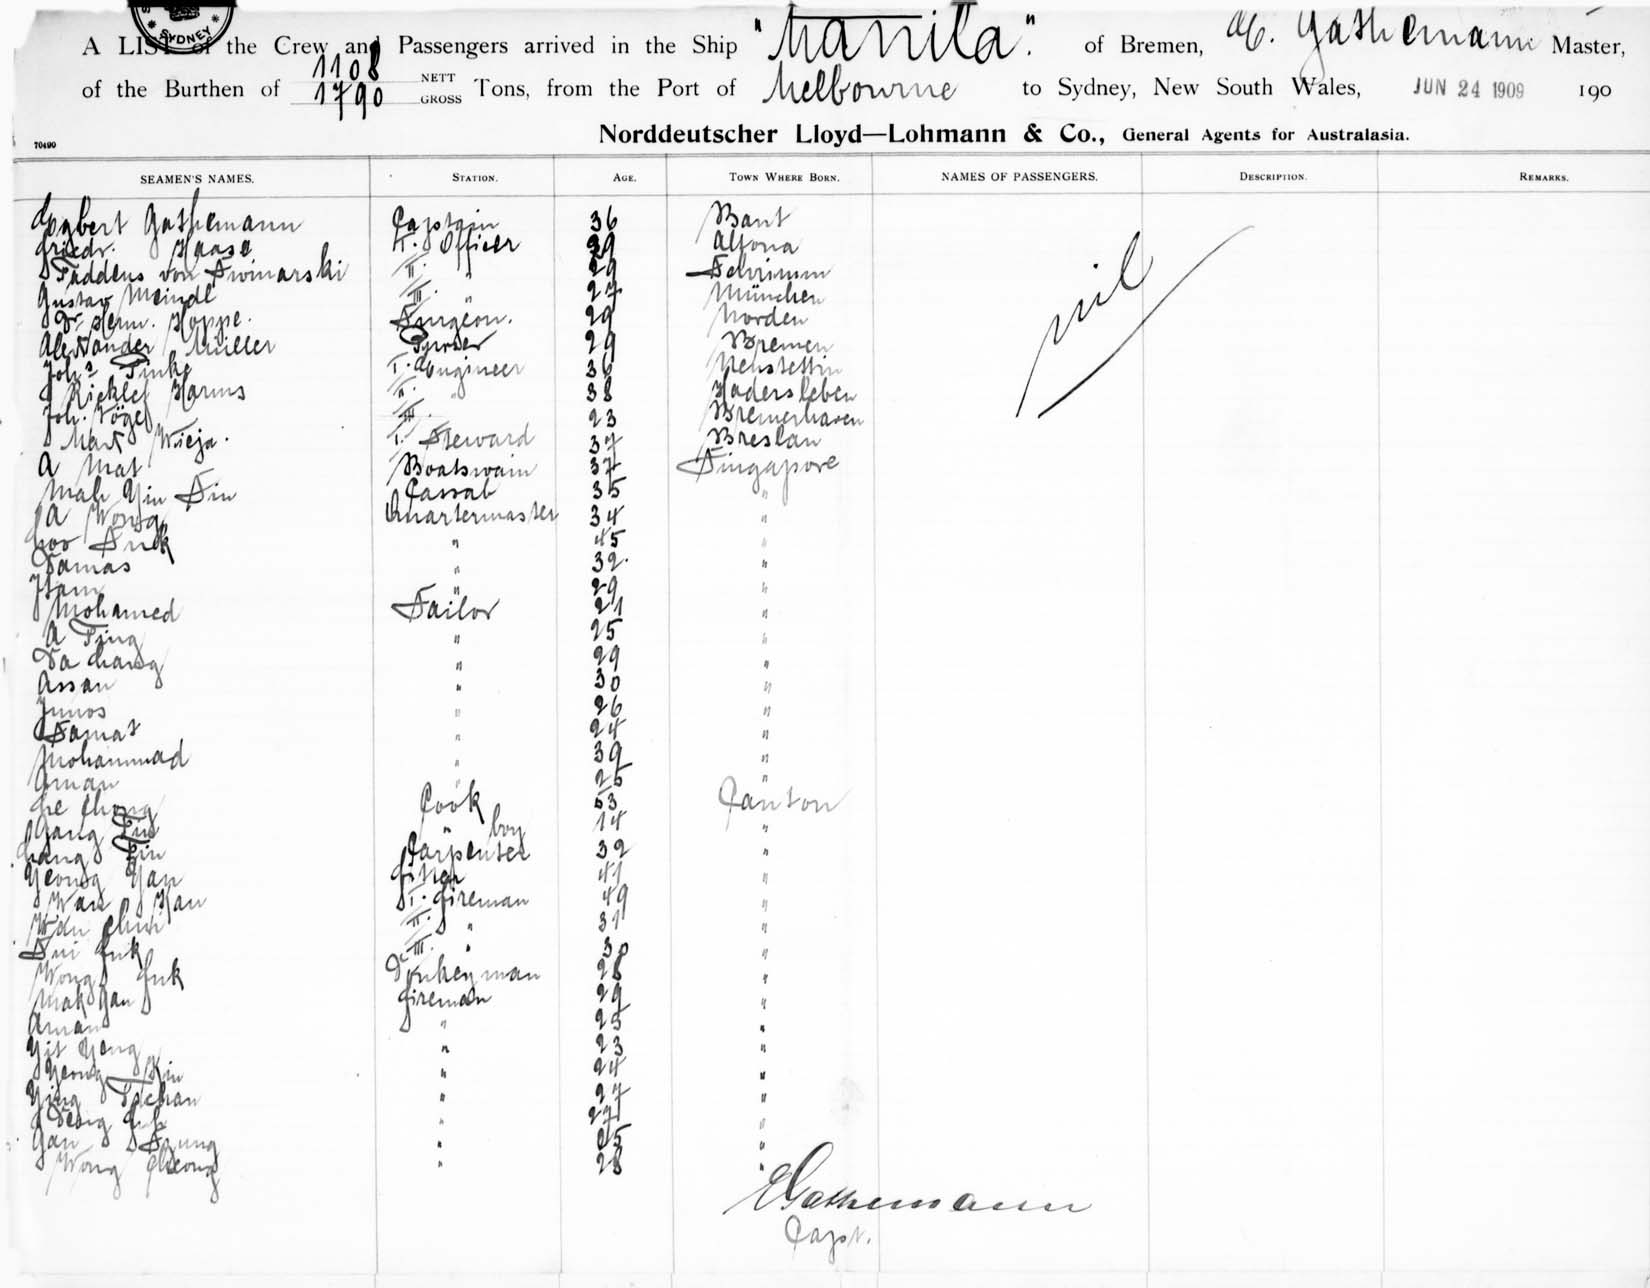 SYDNEY
A LIST of the Crew and Passengers arrived in the Ship "Manila". of Bremen, E. Gathemann Master,
of the Burthen of 1108 NETT 1790 GROSS Tons, from the Port of Melbourne to Sydney, New South Wales, JUN 24 1909 190
Norddeutscher Lloyd—Lohmann & Co., General Agents for Australasia.
70490
SEAMEN'S NAMES. STATION. AGE. TOWN WHERE BORN. NAMES OF PASSENGERS. DESCRIPTION. REMARKS.
Egbert Gathemann Captain 36 Bant
Friedr. Haase I. Officer 29 Altona
Taddeus von Swinarski II. " 29 Schrimm
Gustav Meindl III. " 27 München
Dr. Herm. Hoppe. Surgeon. 29 Norden
Alexander Müller Purser 29 Bremen
Johs Finke I. Engineer 36 Neustettin
Ricklef Harms II. " 38 Hadersleben
Joh. Vögel III. 23 Bremerhaven
Max Wieja. I. Steward 37 Breslau
A Mat Boatswain 37 Singapore
Mah Yin Sin Cassab 35 "
A Wong Quartermaster 34 "
Suck " 45 "
Damas " 32 "
" 29 "
Mohamed Sailor 21 "
A Ting " 25 "
Da Chang " 29 "
Assan " 30 "
Junos " 26 "
Samat " 24 "
Mohammad " 39 "
Aman " 25 "
Chong Cook 53 Canton
" boy 14 "
Carpenter 32 "
Yeong Yan Fitter 41 "
Wan Han I. Fireman 49 "
Wan Chui II. " 31 "
Sui Fuk III. " 30 "
Wong Fuk Donkeyman 28 "
Mak Yan Fireman 29 "
Aman " 25 "
Yit Yong " 23 "
Yeong Kin " 24 "
Ying Tschan " 27 "
" 27 "
Yan " 25 "
Wong Cheong " 28 "
nil
EGathemann
Capt.